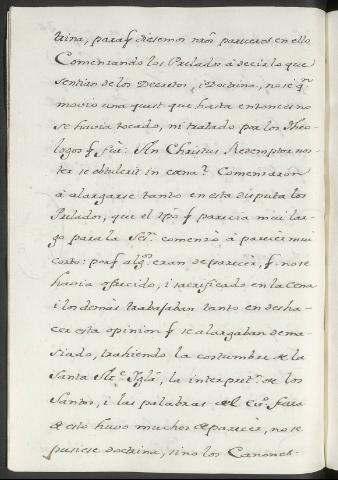 trina, paraq̃ diesemos nr̃os pareceres en ello
Comenzando los Prelados à decir lo que
sentian de los Decretos, i Doctrina, no se q.ⁿ
movio una quest que hasta entonces no
se havia tocado, ni tratado por los Theo-
logos q̃ fũe: An Christus Redemptor nos-
ter se obtulerit in cœna? Comenzaron
à alargarse tanto en esta disputa los
Prelados, que el tp̃o q̃ parecia mui lar-
go para la Ses.ⁿ comenzò à parecer mui
corto: porq̃ alg.ˢ eran de parecer, q̃ no se
havia ofrecido, i sacrificado en la Cena
i los demàs trabajaban tanto en desha-
cer esta opinion q̃ se alargaban dema-
siado, trahiendo la costumbre de la
Santa Igl̃a, la interpret.ⁿ de los
Santos, i las palabras del
de esto huvo muchos de parecer, no se
pusiese doctrina, sino los Canones-